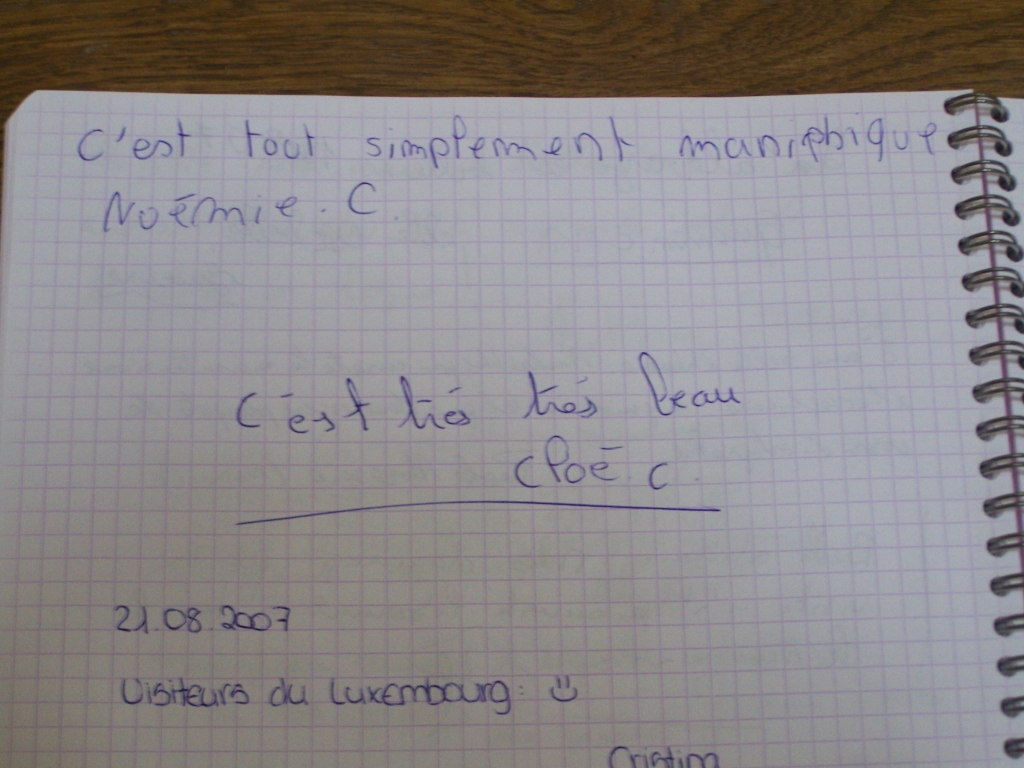 C'est tout simplement maniphique
Noémie. C.
C'est très très beau
Cloé. C.
21.08.2007
Visiteurs du Luxembourg: :)
Cristina